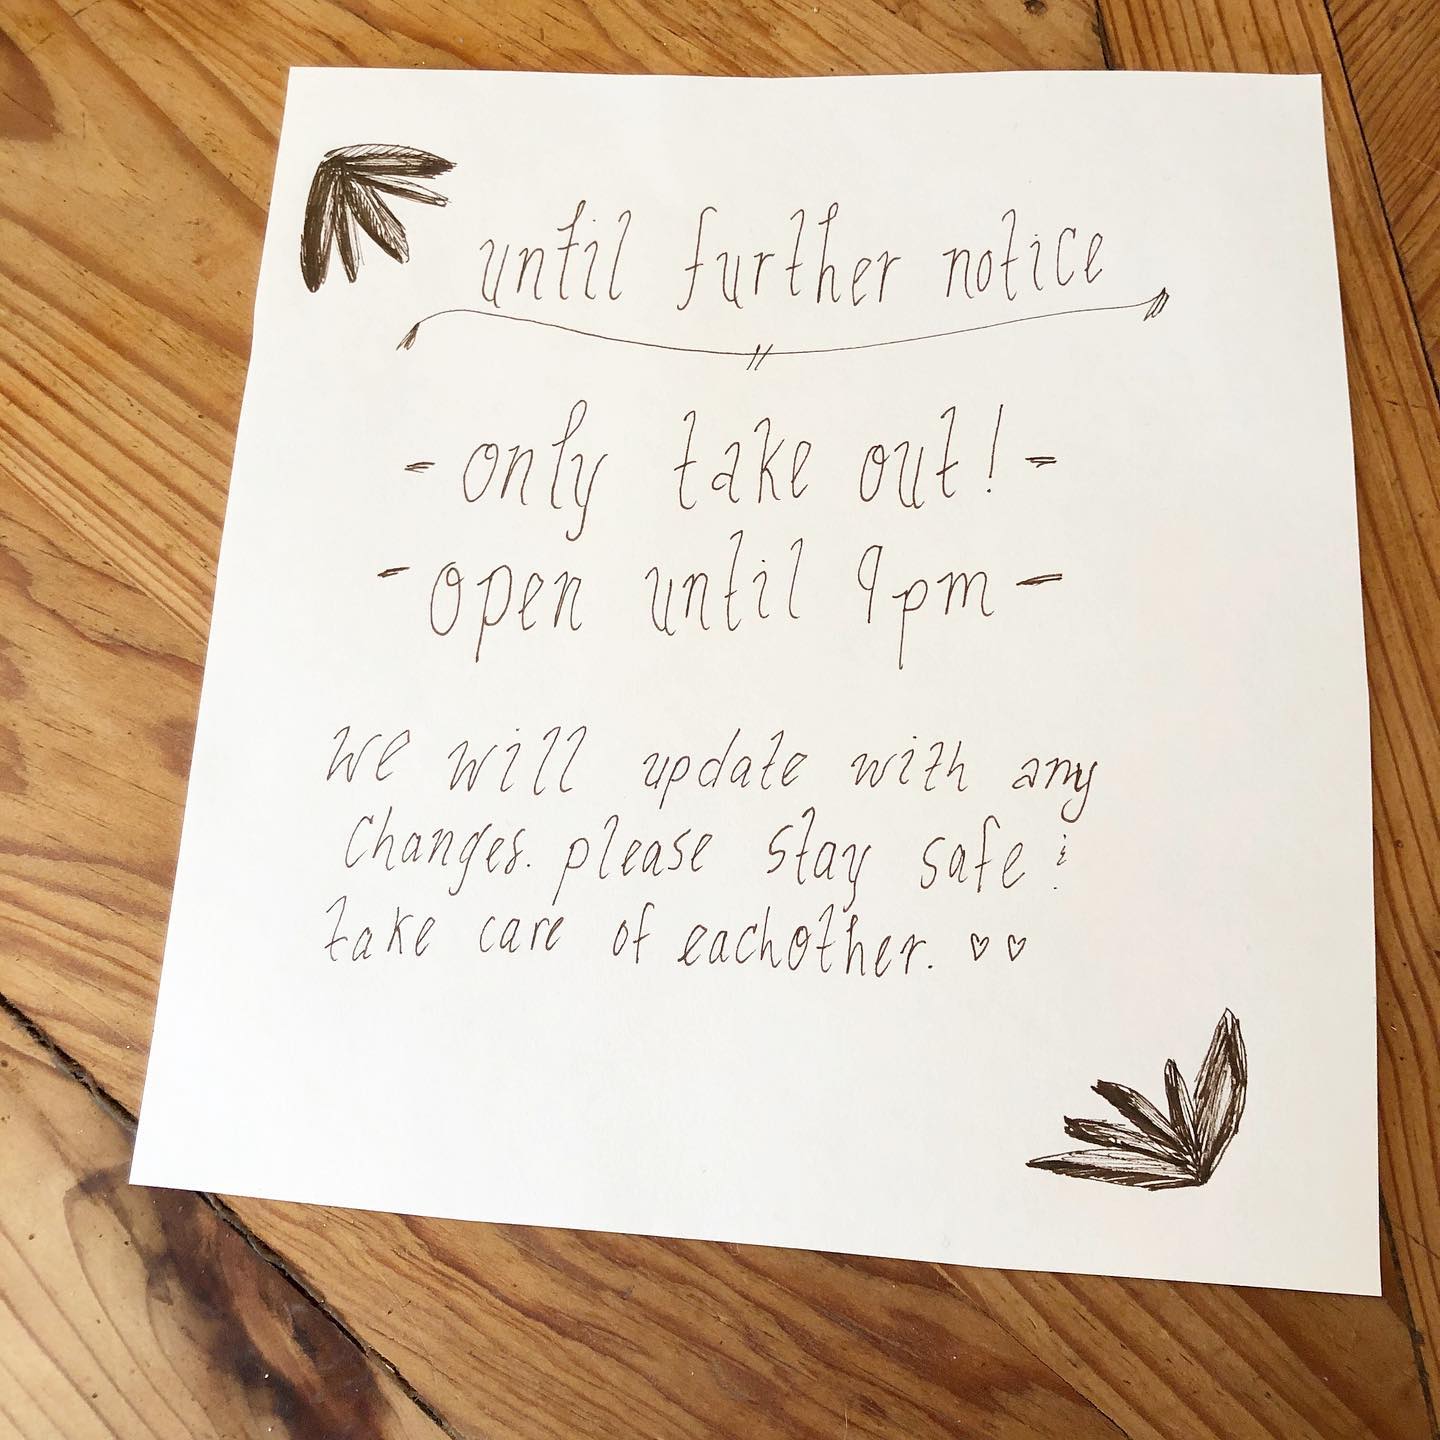 until further notice
- only take out! -
- open until 9pm -
we will update with any
changes. please stay safe &
take care of eachother. ♡♡